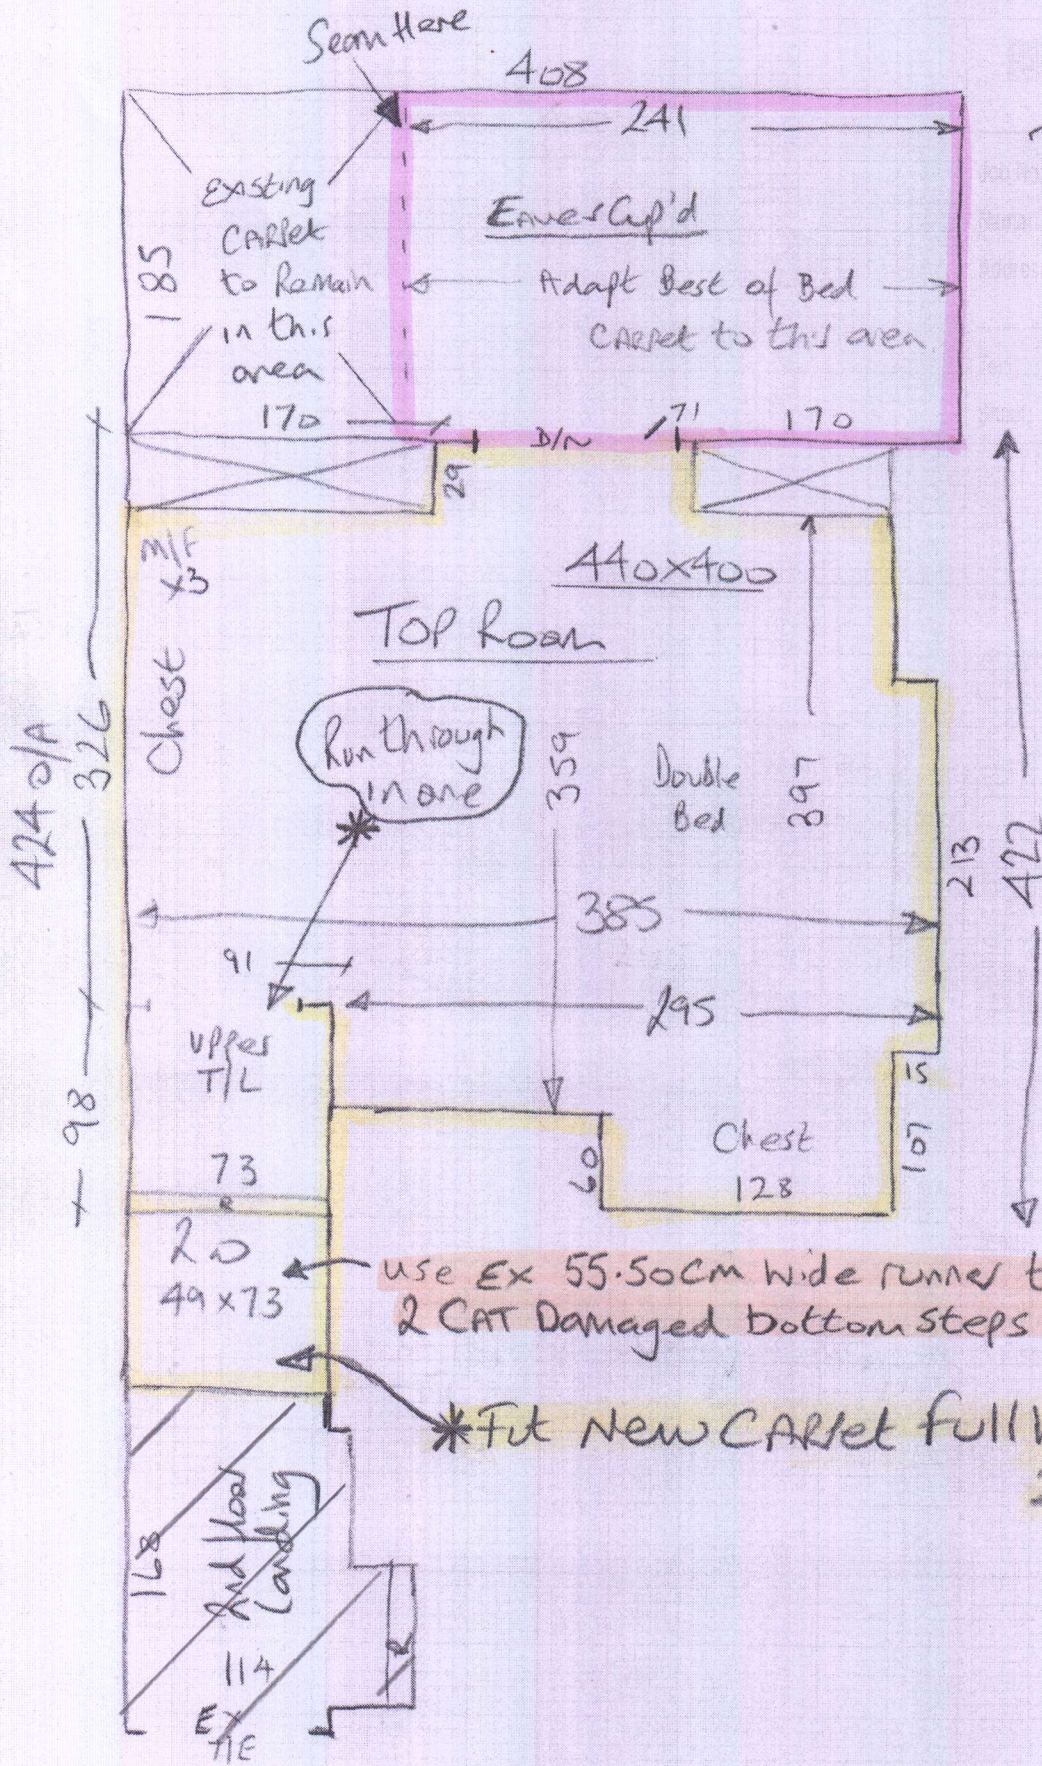 Seam Here
408
241
Existing
CARPet
to Remain
in this
area
185
Eaves Cup'd
Adapt Best of Bed
CARPet to this area
170
71
170
D/N
29
M/F
x3
Chest
440x400
TOP Room
Run through
in one
359
Double
Bed
397
424 O/A
326
98
385
213
422
91
295
upper
T/L
15
107
60
Chest
128
73
R
20
49x73
use Ex 55.50cm wide runner t
2 CAT Damaged bottom steps
*Fit New CARPet full
168
2nd floor
Landing
R
114
Ex